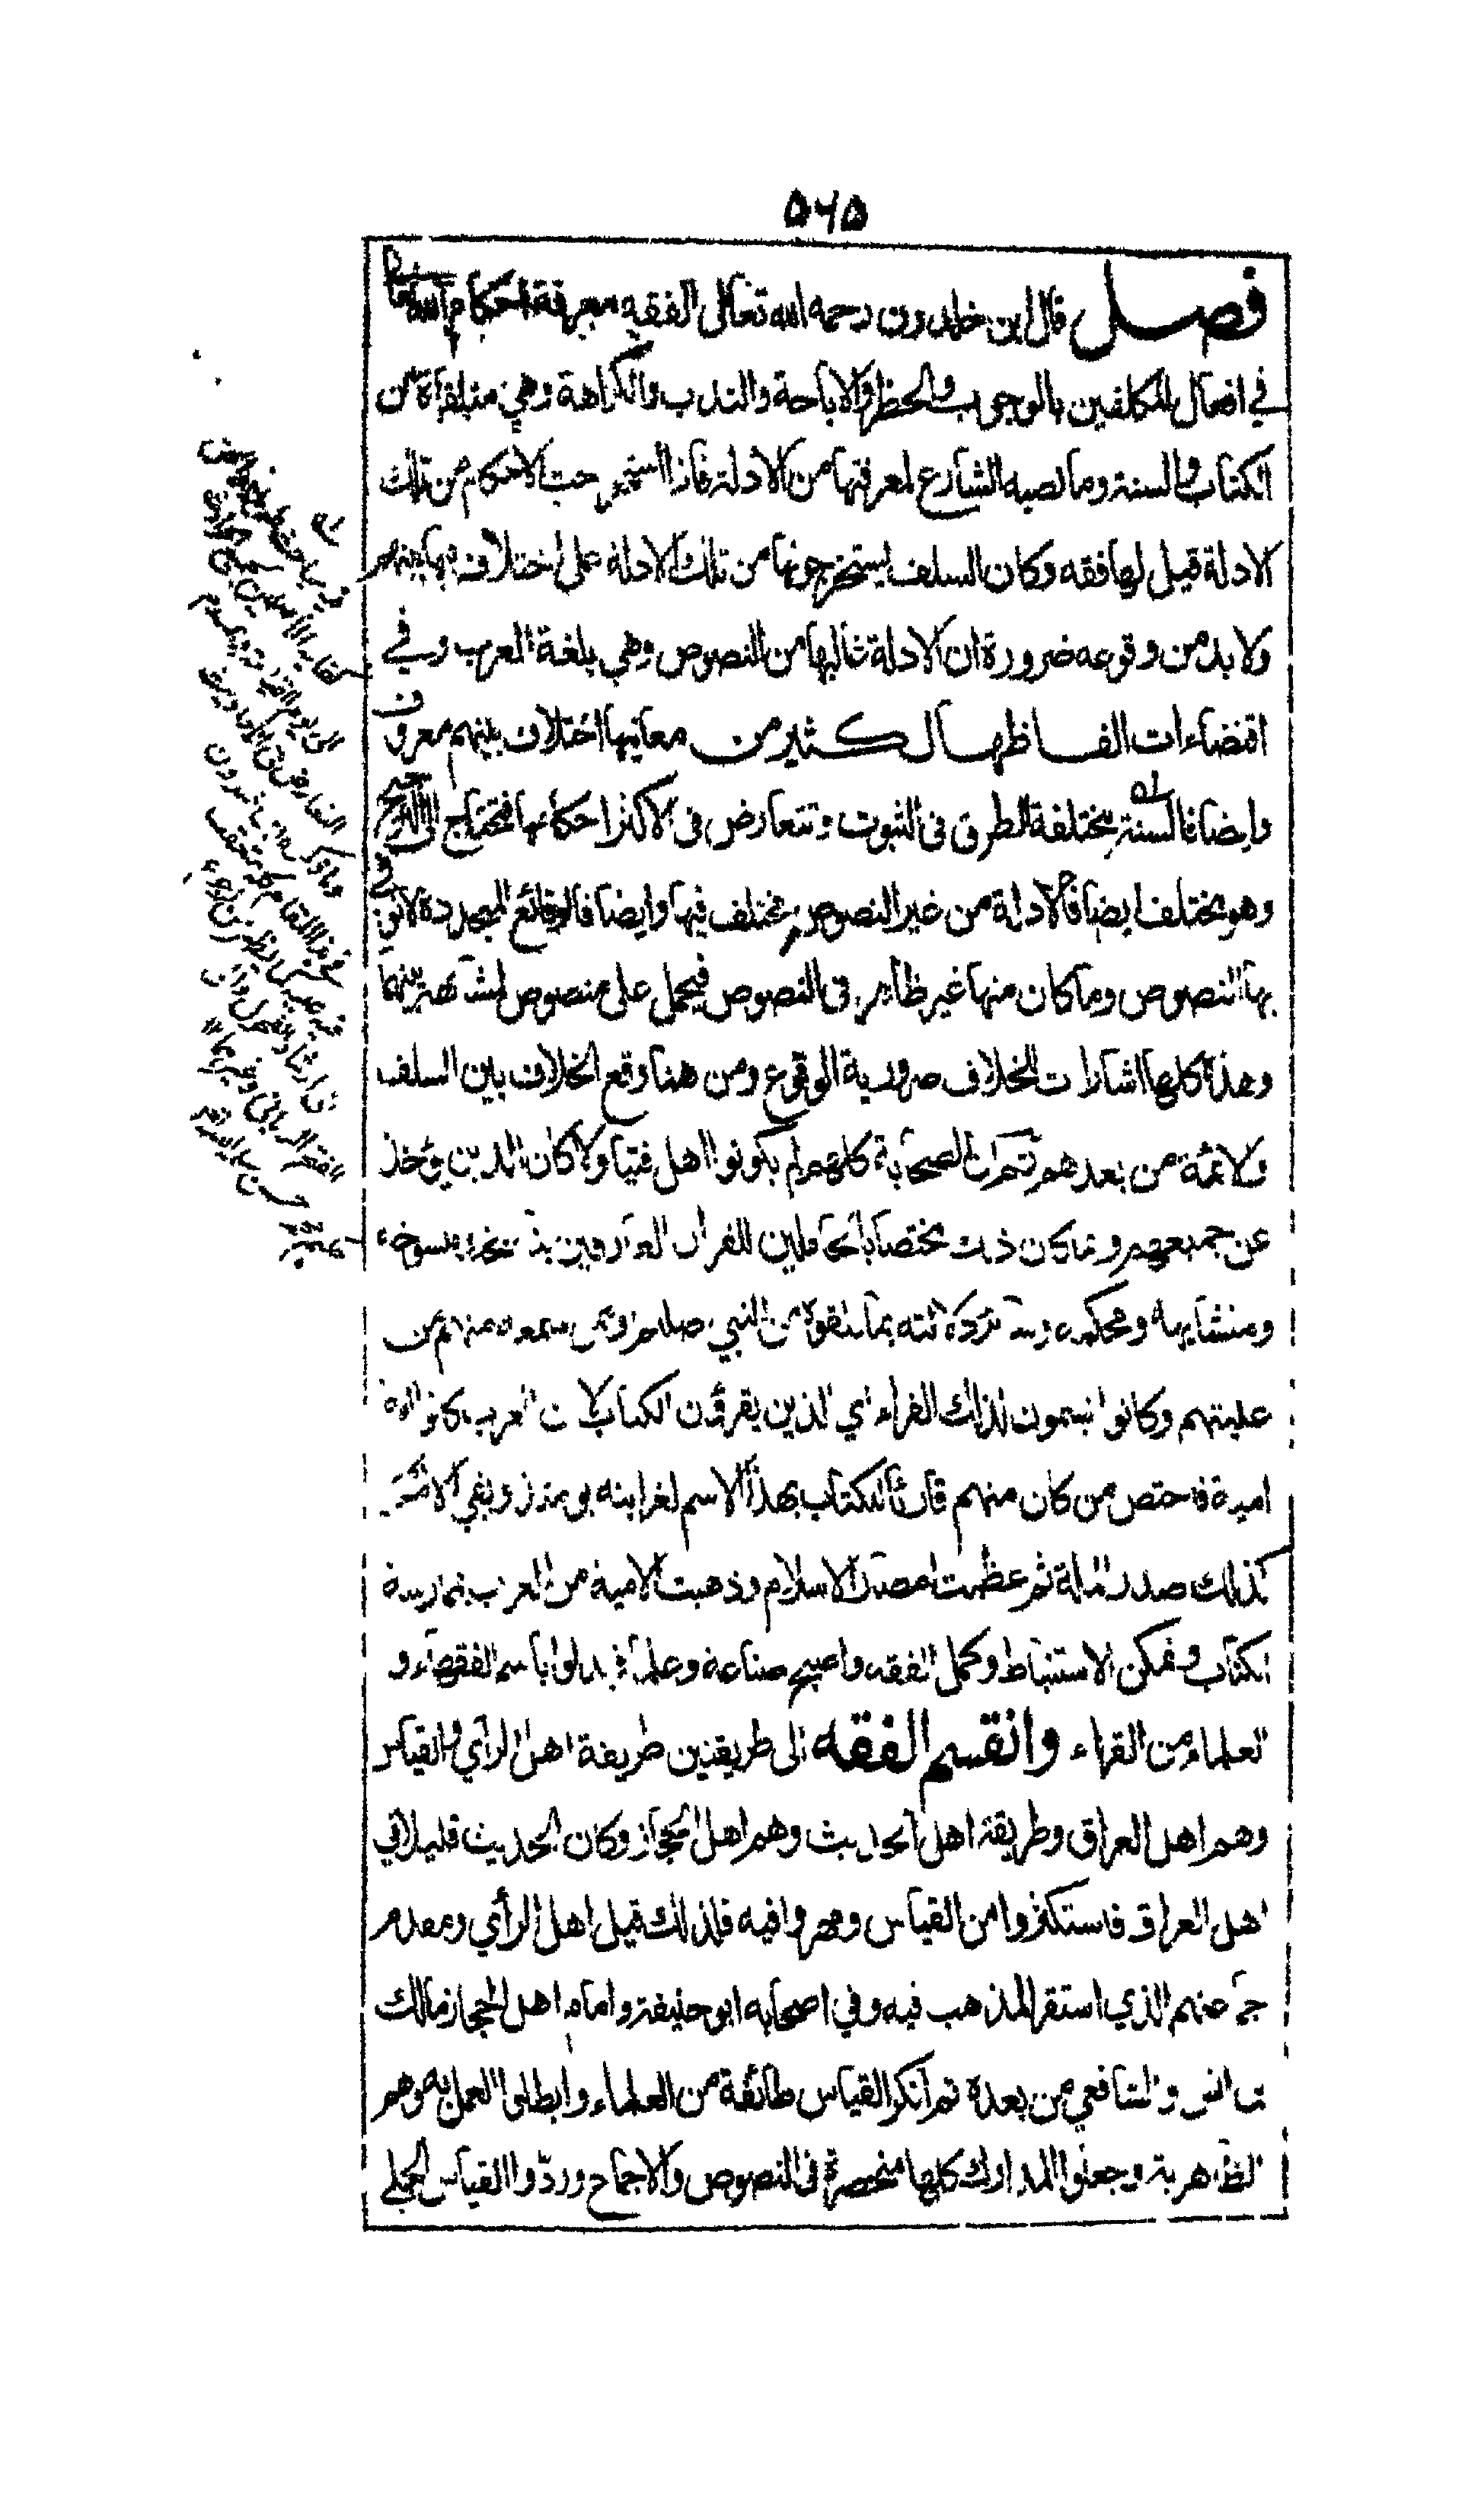 ٥٢٥
فصل قال ابن خلدون رحمه الله تعالى الفقه معرفة احكام الله تعالى
في افعال المكلفين بالوجوب والحظر والاباحة والندب والكراهة وهي متلقاة من
الكتاب والسنة وما نصبه الشارع لمعرفتها من الادلة فاذا استخرجت الاحكام من تلك
الادلة قيل لها فقه وكان السلف يستخرجونها من تلك الادلة على اختلاف فيها بينهم
ولا بد من وقوعه ضرورة ان الادلة غالبها من النصوص وهي بلغة العرب وفي
اقتضاءات الفاظها لكثير من معانيها اختلاف بينهم معروف
وايضا فالسنة مختلفة الطرق في الثبوت وتتعارض في الاكثر احكامها فتحتاج الى الترجيح
وهو مختلف ايضا فالادلة من غير النصوص مختلف فيها وايضا فالوقائع المتجددة لا توفي
بها النصوص وما كان منها غير ظاهر في النصوص فيحمل على منصوص لمشابهة بينهما
وهذه كلها اشارات للخلاف ضرورية الوقوع ومن هنا وقع الخلاف بين السلف
والائمة من بعدهم ثم ان الصحابة كلهم لم يكونوا اهل فتيا ولا كان الدين يؤخذ
عن جميعهم وانما كان ذلك مختصا بالحاملين للقران العارفين بناسخه ومنسوخه
ومتشابهه ومحكمه وسائر دلالته بما تلقوه من النبي صلعم او ممن سمعه منهم من
عليتهم وكانوا يسمون لذلك القراء اي الذين يقرؤن الكتاب لان العرب كانوا امة
امية فاختص من كان منهم قارئا للكتاب بهذا الاسم لغرابته يومئذ وبقي الامر
كذلك صدر الملة ثم عظمت امصار الاسلام وذهبت الامية من العرب بممارسة
الكتاب وتمكن الاستنباط وكمل الفقه واصبح صناعة وعلما فبدلوا باسم الفقهاء و
العلماء من القراء وانقسم الفقه الى طريقين طريقة اهل الرأي والقياس
وهم اهل العراق وطريقة اهل الحديث وهم اهل الحجاز وكان الحديث قليلا في
اهل العراق فاستكثروا من القياس ومهروا فيه فلذلك قيل اهل الرأي ومقدم
جماعتهم الذي استقر المذهب فيه وفي اصحابه ابو حنيفة وامام اهل الحجاز مالك
بن انس والشافعي من بعده ثم انكر القياس طائفة من العلماء وابطلوا العمل به وهم
الظاهرية وجعلوا المدارك كلها منحصرة في النصوص والاجماع وردوا القياس الجلي